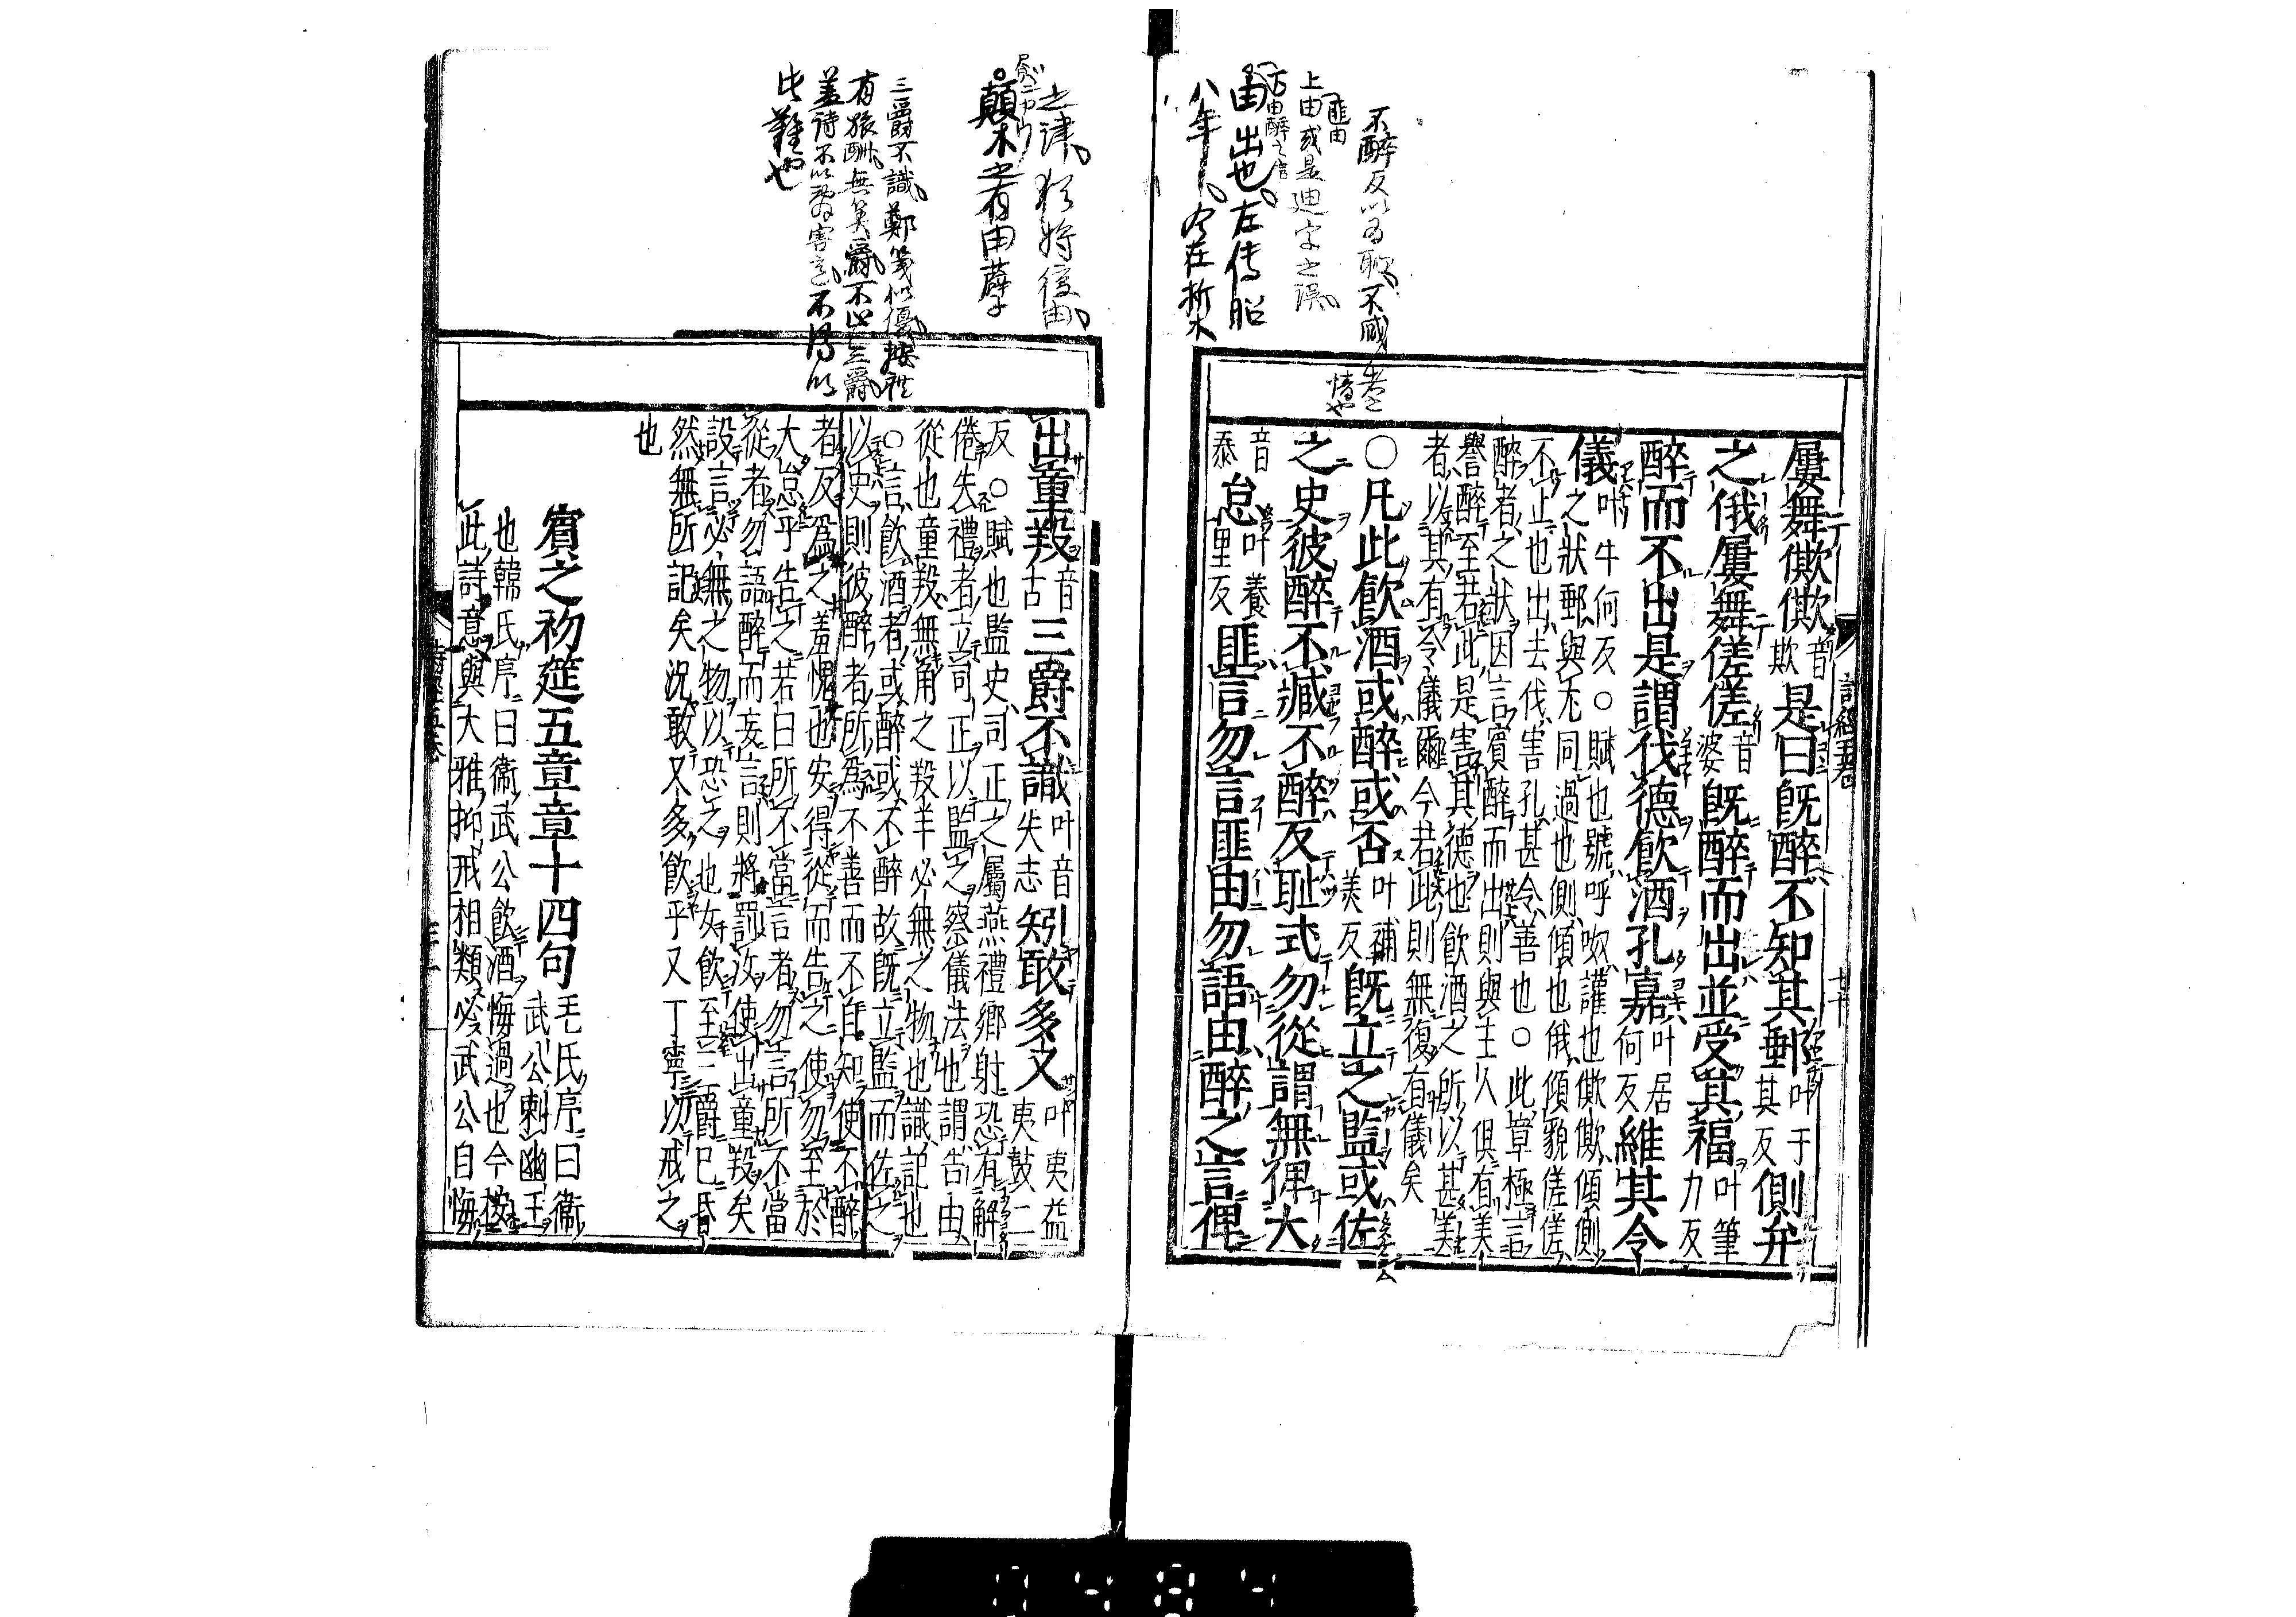 不醉反以為恥、不臧者
怪也
匪由
上由或是迪字之誤、
下由醉之言
由出也、左傳昭
八年、今在析木
之津、猶將復由、
顛木之有由蘗
三爵不識、鄭箋似優、按禮
有旅酬、無算爵、不止三爵、
蓋詩不以辭害意、不得以
此難也
屢舞僛僛音欺是曰既醉不知其郵叶于其反側弁
之俄屢舞傞傞音婆既醉而出並受其福叶筆力反
醉而不出是謂伐德飲酒孔嘉叶居何反維其令
儀叶牛何反○賦也號呼呶讙也僛僛傾側
之狀郵與尤同過也側傾也俄傾貌傞傞
不止也出去伐害孔甚令善也○此章極言
醉者之狀因言賓醉而出則與主人俱有美
譽醉至若此是害其德也飲酒之所以甚美
者以其有令儀爾今若此則無復有儀矣
○凡此飲酒或醉或否叶補美反既立之監或佐
之史彼醉不臧不醉反恥式勿從謂無俾大
音泰怠叶養里反匪言勿言匪由勿語由醉之言俾
出童羖音古三爵不識叶音失志矧敢多又叶夷益夷鼓二
反○賦也監史司正之屬燕禮鄉射恐有解
倦失禮者立司正以監之察儀法也謂告由
從也童羖無角之羖羊必無之物也識記也
○言飲酒者或醉或不醉故既立監而佐之
以史則彼醉者所為不善而不自知使不醉
者反為之羞愧也安得從而告之使勿至於
大怠乎告之若曰所不當言者勿言所不當
從者勿語醉而妄言則將罰汝使出童羖矣
設言必無之物以恐之也女飲至三爵已昏
然無所記矣況敢又多飲乎又丁寧以戒之
也
賓之初筵五章章十四句毛氏序曰衛
武公刺幽王
也韓氏序曰衛武公飲酒悔過也今按
此詩意與大雅抑戒相類必武公自悔